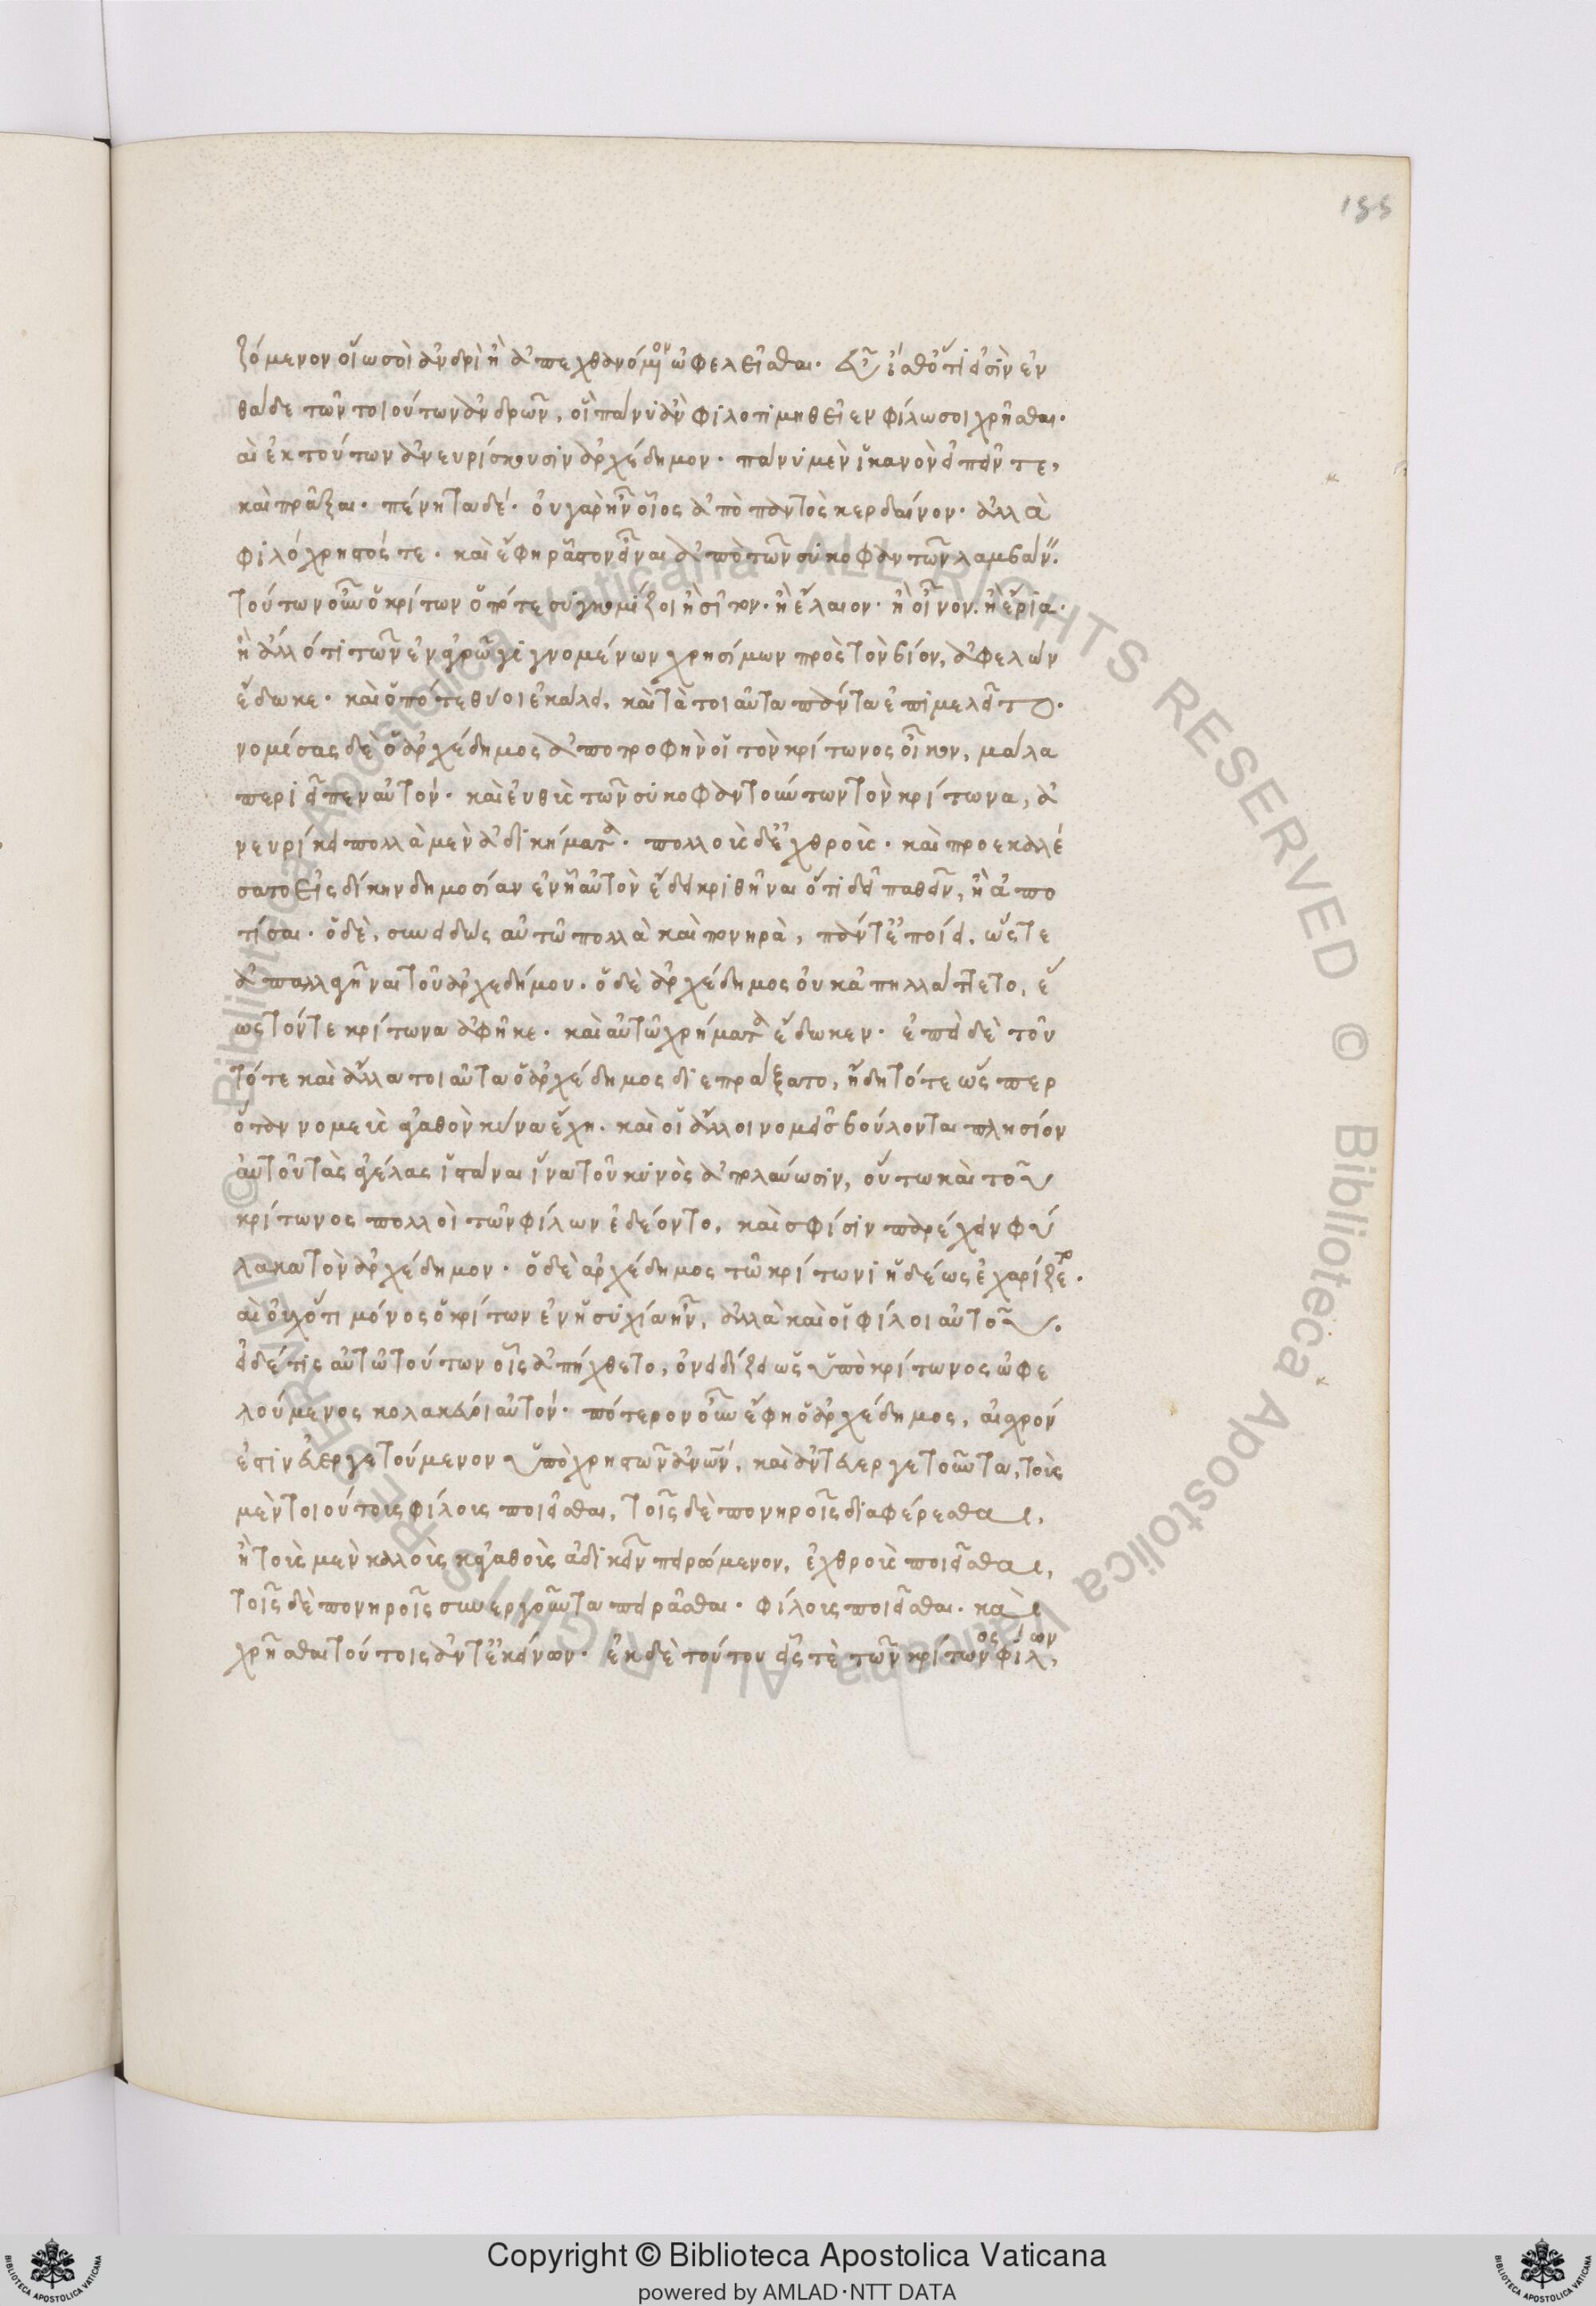 155
ζόμενον οἵω σοὶ ἀνδρὶ ἢ ἀπεχθανόμενον ὠφελεῖσθαι. εὖ ἴσθ ὅτι εἰσὶν ἐν
θάδε τῶν τοιούτων ἀνδρῶν, οἳ πάνυ ἂν φιλοτιμηθεῖεν φίλω σοι χρῆσθαι.
καὶ ἐκ τούτων ἀνευρίσκουσιν ἀρχέδημον. πάνυ μὲν ἱκανὸν εἰπεῖν τε,
καὶ πρᾶξαι. πένητα δέ. οὐ γὰρ ἦν οἷος ἀπὸ παντὸς κερδαίνειν. ἀλλὰ
φιλόχρηστός τε. καὶ ἔφη ῥᾷστον εἶναι ἀπὸ τῶν συκοφαντῶν λαμβάνειν.
τούτων οὖν ὁ κρίτων ὁπότε συγκομίζοι ἢ σῖτον. ἢ ἔλαιον. ἢ οἶνον. ἢ ἔρια.
ἢ ἄλλό τι τῶν ἐν ἀγρῶ γιγνομένων χρησίμων πρὸς τὸν βίον, ἀφελὼν
ἔδωκε. καὶ ὁπότε θύοι ἐκάλει, καὶ τὰ τοιαῦτα πάντα ἐπιμελεῖτο.
νομίσας δὲ ὁ ἀρχέδημος ἀποστροφήν οἱ τὸν κρίτωνος οἶκον, μάλα
περιεῖπεν αὐτόν. καὶ εὐθὺς τῶν συκοφαντούντων τὸν κρίτωνα, ἀ
νευρίκει πολλὰ μὲν ἀδικήματα. πολλοὺς δ' ἐχθρούς. καὶ προεκαλέ
σατο εἰς δίκην δημοσίαν ἐν ἧ αὐτὸν ἔδει κριθῆναι ὅτι δεῖ παθεῖν, ἢ ἀπο
τίσαι. ὁ δὲ, συνειδὼς αὑτῶ πολλὰ καὶ πονηρὰ, πάντ' ἐποίει, ὥστε
ἀπαλλαγῆναι τοῦ ἀρχεδήμου. ὁ δὲ ἀρχέδημος οὐκ ἀπηλλάττετο, ἕ
ως τόν τε κρίτωνα ἀφῆκε. καὶ αὐτῶ χρήματα ἔδωκεν. ἐπεὶ δὲ τοῦ
τό τε καὶ ἄλλα τοιαῦτα ὁ ἀρχέδημος διεπράξατο, ἤδη τότε ὥσπερ
ὅταν νομεὺς ἀγαθὸν κύνα ἔχη. καὶ οἱ ἄλλοι νομεῖς βούλονται πλησίον
αὐτοῦ τὰς ἀγέλας ἱστάναι ἵνα τοῦ κυνὸς ἀπολαύωσιν, οὕτω καὶ τοῦ
κρίτωνος πολλοὶ τῶν φίλων ἐδέοντο, καὶ σφίσιν παρέχειν φύ
λακα τὸν ἀρχέδημον. ὁ δὲ ἀρχέδημος τῶ κρίτωνι ἡδέως ἐχαρίζετο.
καὶ οὐχ ὅτι μόνος ὁ κρίτων ἐν ἡσυχία ἦν, ἀλλὰ καὶ οἱ φίλοι αὐτοῦ.
εἰ δέ τις αὐτῶ τούτων οἷς ἀπήχθετο, ὀνειδίζει ὡς ὑπὸ κρίτωνος ὠφε
λούμενος κολακεύοι αὐτόν. πότερον οὖν ἔφη ὁ ἀρχέδημος, αἰσχρόν
ἐστιν εὐεργετούμενον ὑπὸ χρηστῶν ἀνθρώπων, καὶ ἀντευεργετοῦντα, τοὺς
μὲν τοιούτους φίλους ποιεῖσθαι, τοῖς δὲ πονηροῖς διαφέρεσθαι,
ἢ τοὺς μὲν καλοὺς κἀγαθοὺς ἀδικεῖν πειρώμενον, ἐχθροὺς ποιεῖσθαι,
τοῖς δὲ πονηροῖς συνεργοῦντα πειρᾶσθαι. φίλους ποιεῖσθαι. καὶ
χρῆσθαι τούτοις ἀντ' ἐκείνων. ἐκ δὲ τούτου εἷς τὲ τῶν κρίτωνος φίλων,
Copyright © Biblioteca Apostolica Vaticana
powered by AMLAD·NTT DATA